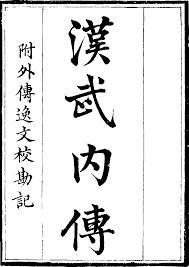 漢武內傳
附外傳逸文校勘記